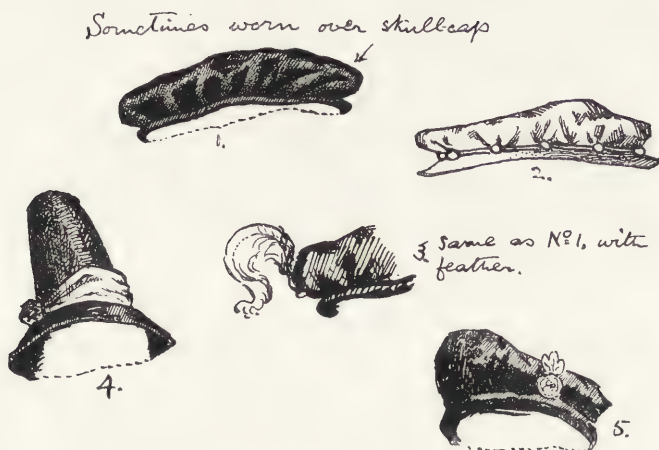 Sometimes worn over skull-cap
1.
2.
3. same as Nº 1, with
feather.
4.
5.